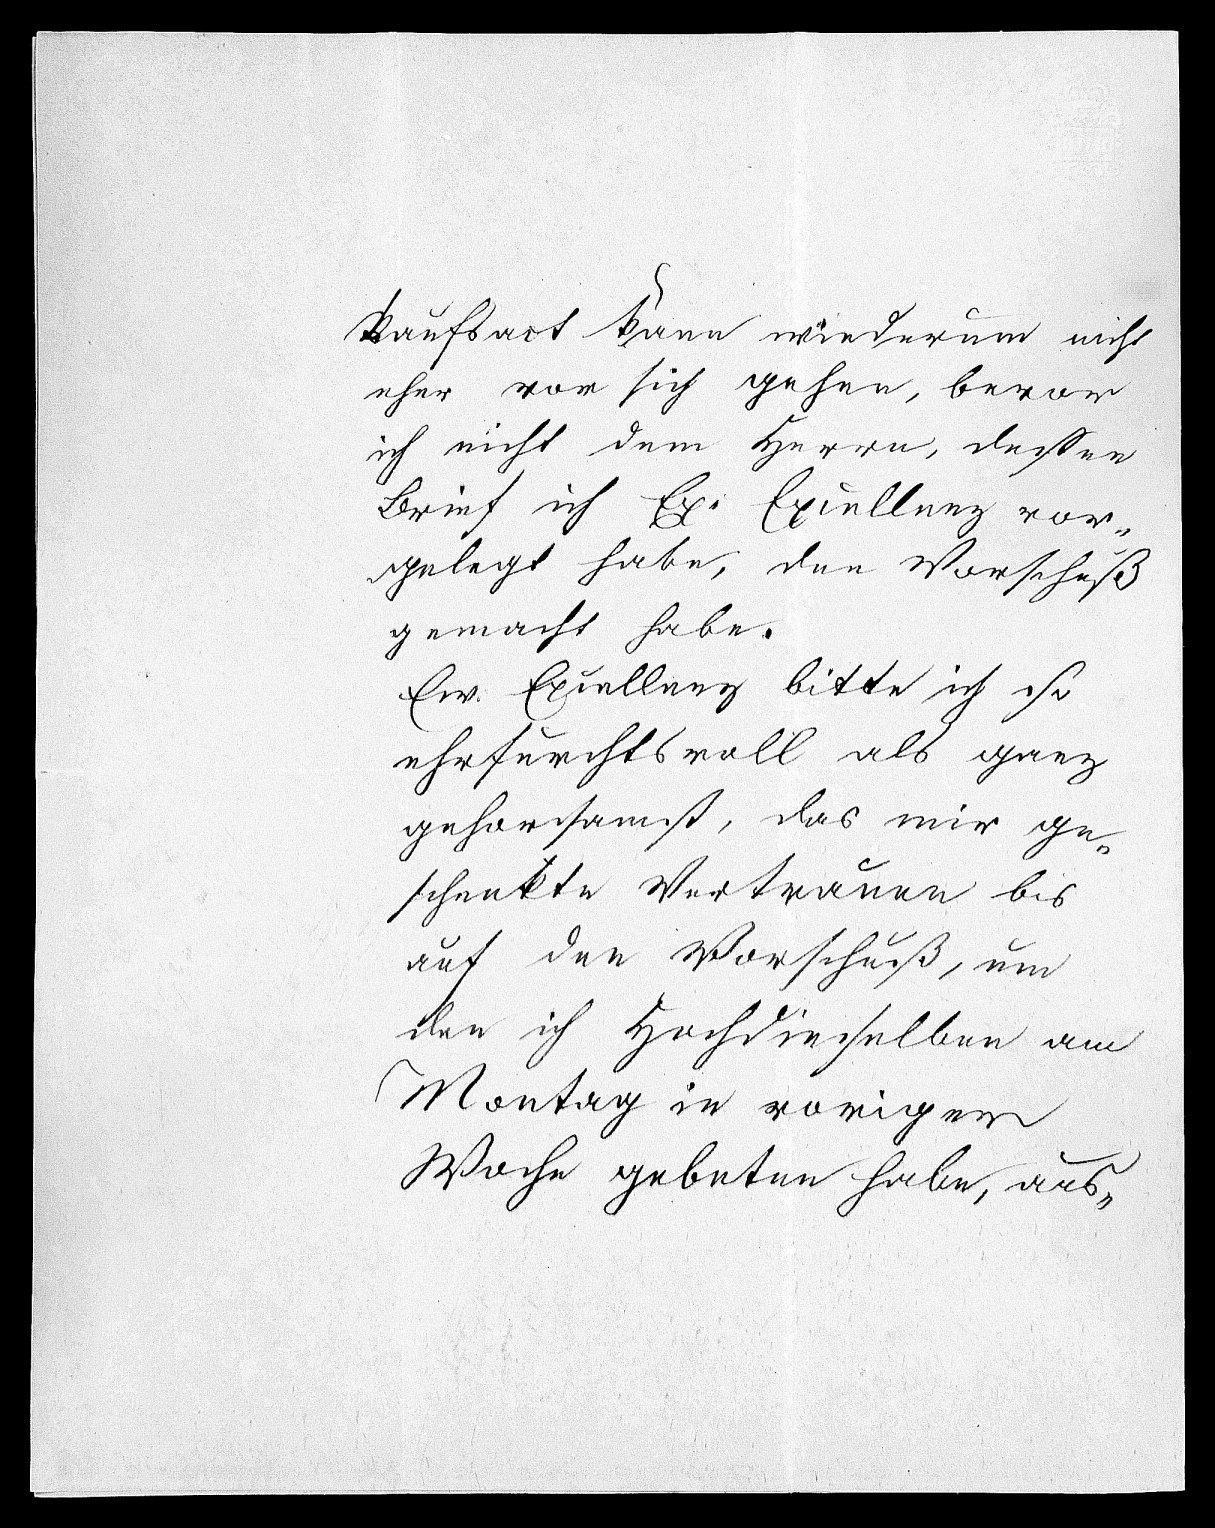 Kaufsact kann wiederum nicht
eher vor sich gehen, bevor
ich nicht dem Herrn, dessen
Brief ich Ex. Excellenz vor-
gelegt habe, den Vorschuß
gemacht habe.
Ew. Excellenz bitte ich so
ehrfurchtsvoll als ganz
gehorsamst, das mir ge-
schenkte Vertrauen bis
auf den Vorschuß, um
den ich Hochdieselben am
Montag in voriger
Woche gebeten habe, aus-